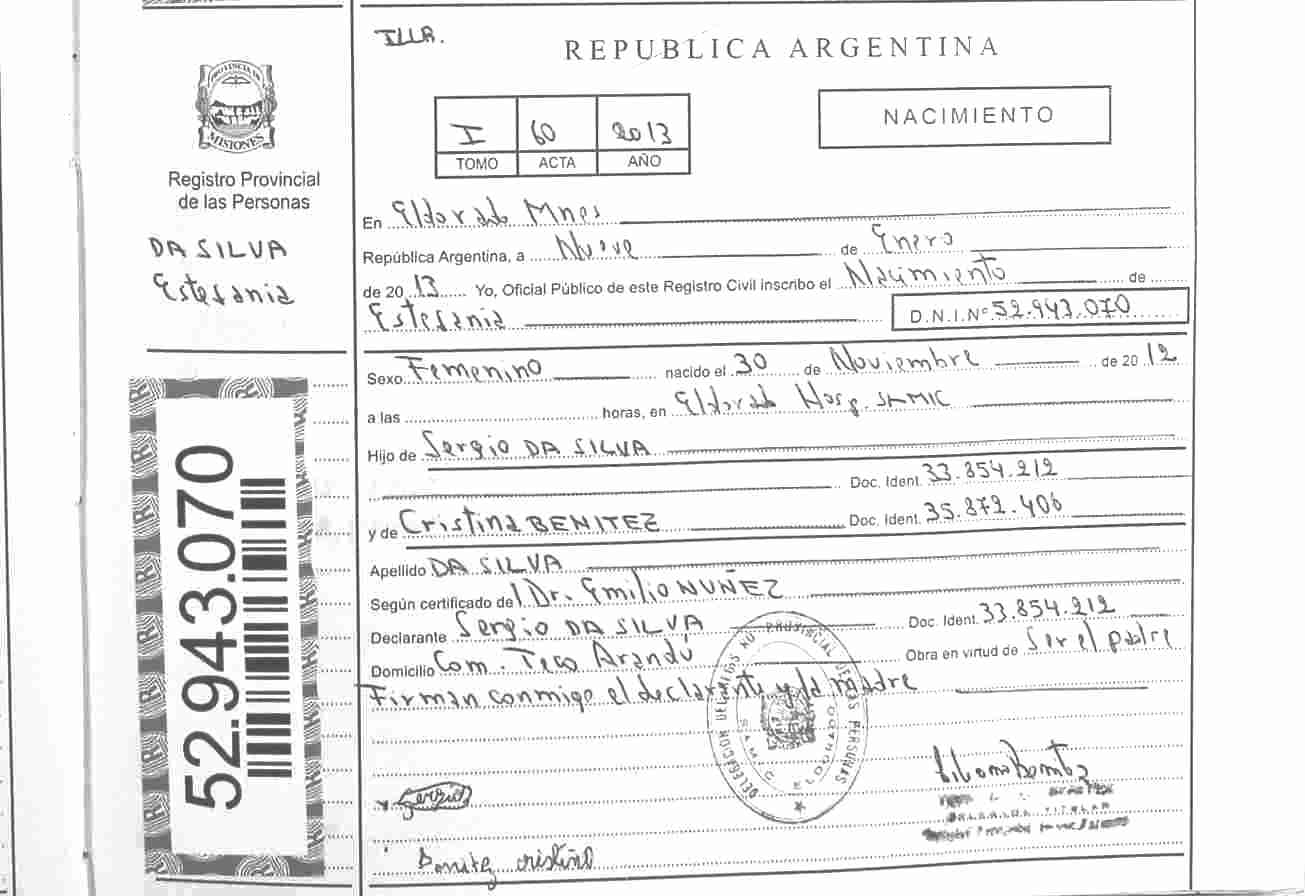 ILLA.
REPUBLICA ARGENTINA
PROVINCIA DE
MISIONES
Registro Provincial
de las Personas
DA SILVA
Estefania
I 60 2013
TOMO ACTA AÑO
NACIMIENTO
En Eldorado Mnes
República Argentina, a Nueve de Enero
de 2013 Yo, Oficial Público de este Registro Civil inscribo el Nacimiento de
Estefania D.N.I.Nº 52.943.070
Sexo Femenino nacido el 30 de Noviembre de 2012
a las horas, en Eldorado Hosp. SAMIC
Hijo de Sergio DA SILVA
Doc. Ident. 33.854.212
y de Cristina BENITEZ Doc. Ident. 35.872.406
Apellido DA SILVA
Según certificado de Dr. Emilio NUÑEZ
Declarante Sergio DA SILVA Doc. Ident. 33.854.212
Domicilio Com. Teco Arandú Obra en virtud de Ser el padre
Firman conmigo el declarante y la madre
PROVINCIAL DE LAS PERSONAS
DELEGACION
SAMIC ELDORADO
DELEGADA TITULAR
Benitez cristina
52.943.070